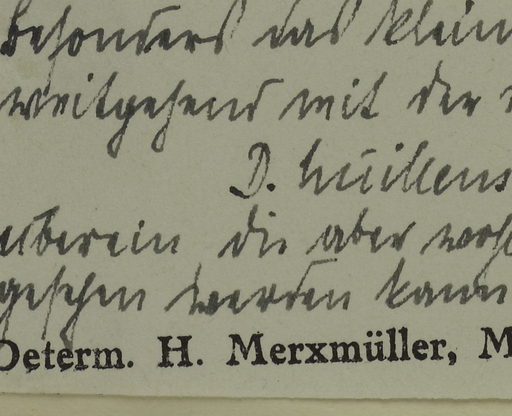 besonders das klein
weitgehend mit der
D.
überein die aber wohl
gesehen werden kann
Determ. H. Merxmüller, M